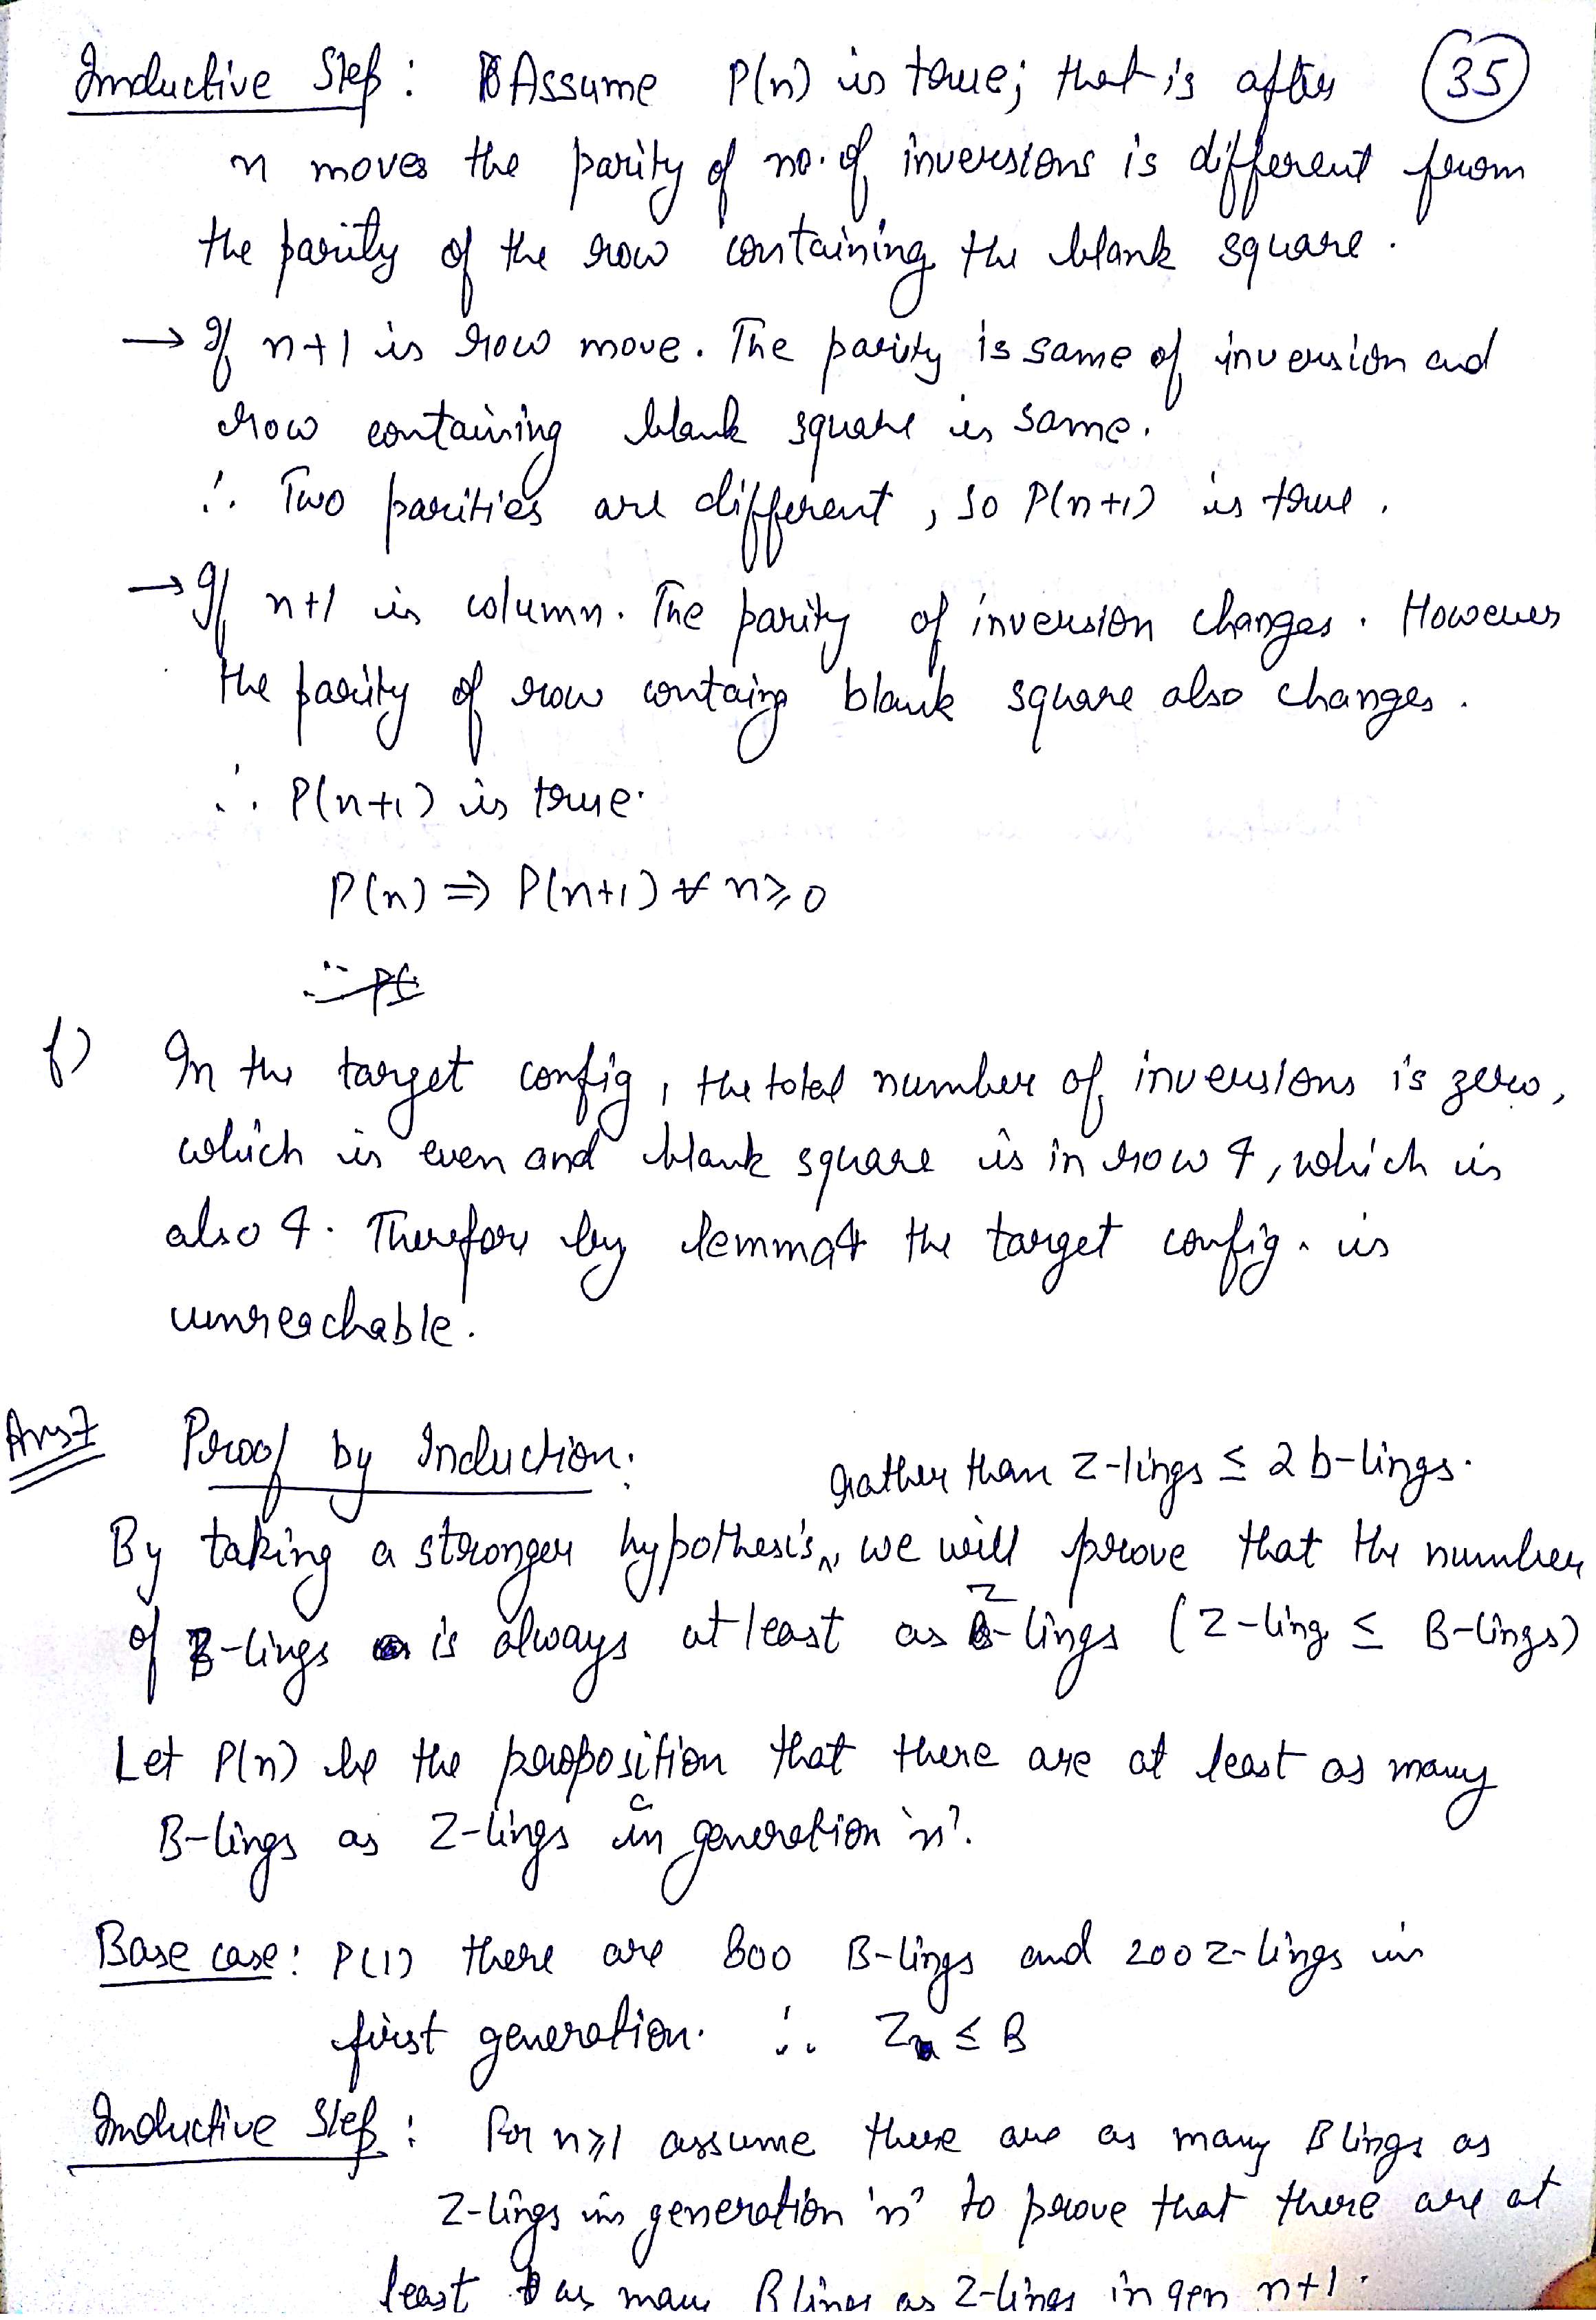 Inductive Step : Assume P(n) is true; that is after (35)
n moves the parity of no. of inversions is different from
the parity of the row containing the blank square.
→ If n+1 is row move. The parity is same of inversion and
row containing blank square is same.
∴ Two parities are different, so P(n+1) is true.
→ If n+1 is column. The parity of inversion changes. However
the parity of row containg blank square also changes.
∴ P(n+1) is true.
P(n) ⇒ P(n+1) ∀ n≥0
f) In the target config, the total number of inversions is zero,
which is even and blank square is in row 4, which is
also 4. Therefore by lemma 4 the target config. is
unreachable.
Ans7 Proof by Induction:
rather than Z-lings ≤ 2 b-lings.
By taking a stronger hypothesis, we will prove that the number
of B-lings is always at least as Z-lings (Z-ling ≤ B-lings)
Let P(n) be the proposition that there are at least as many
B-lings as Z-lings in generation 'n'.
Base case: P(1) there are 800 B-lings and 200 Z-lings in
first generation. ∴ Z ≤ B
Inductive Step : For n≥1 assume there are as many B lings as
Z-lings in generation 'n' to prove that there are at
least as many B lings as Z-lings in gen n+1.